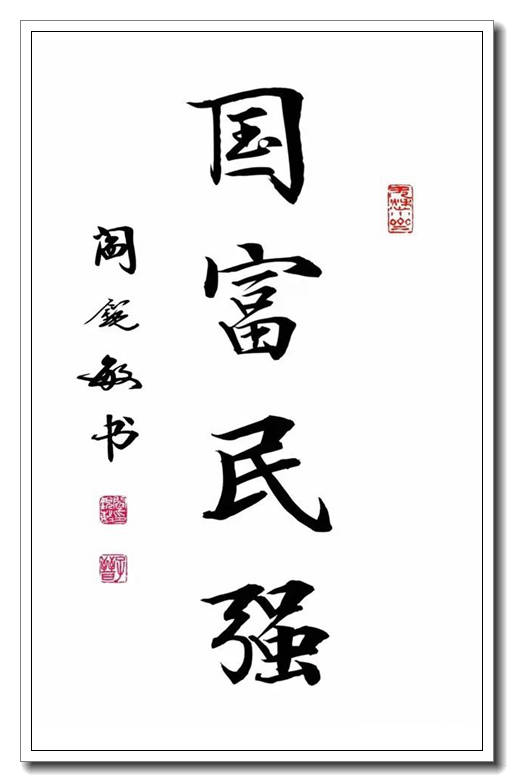 国富民强
阎锐敏书